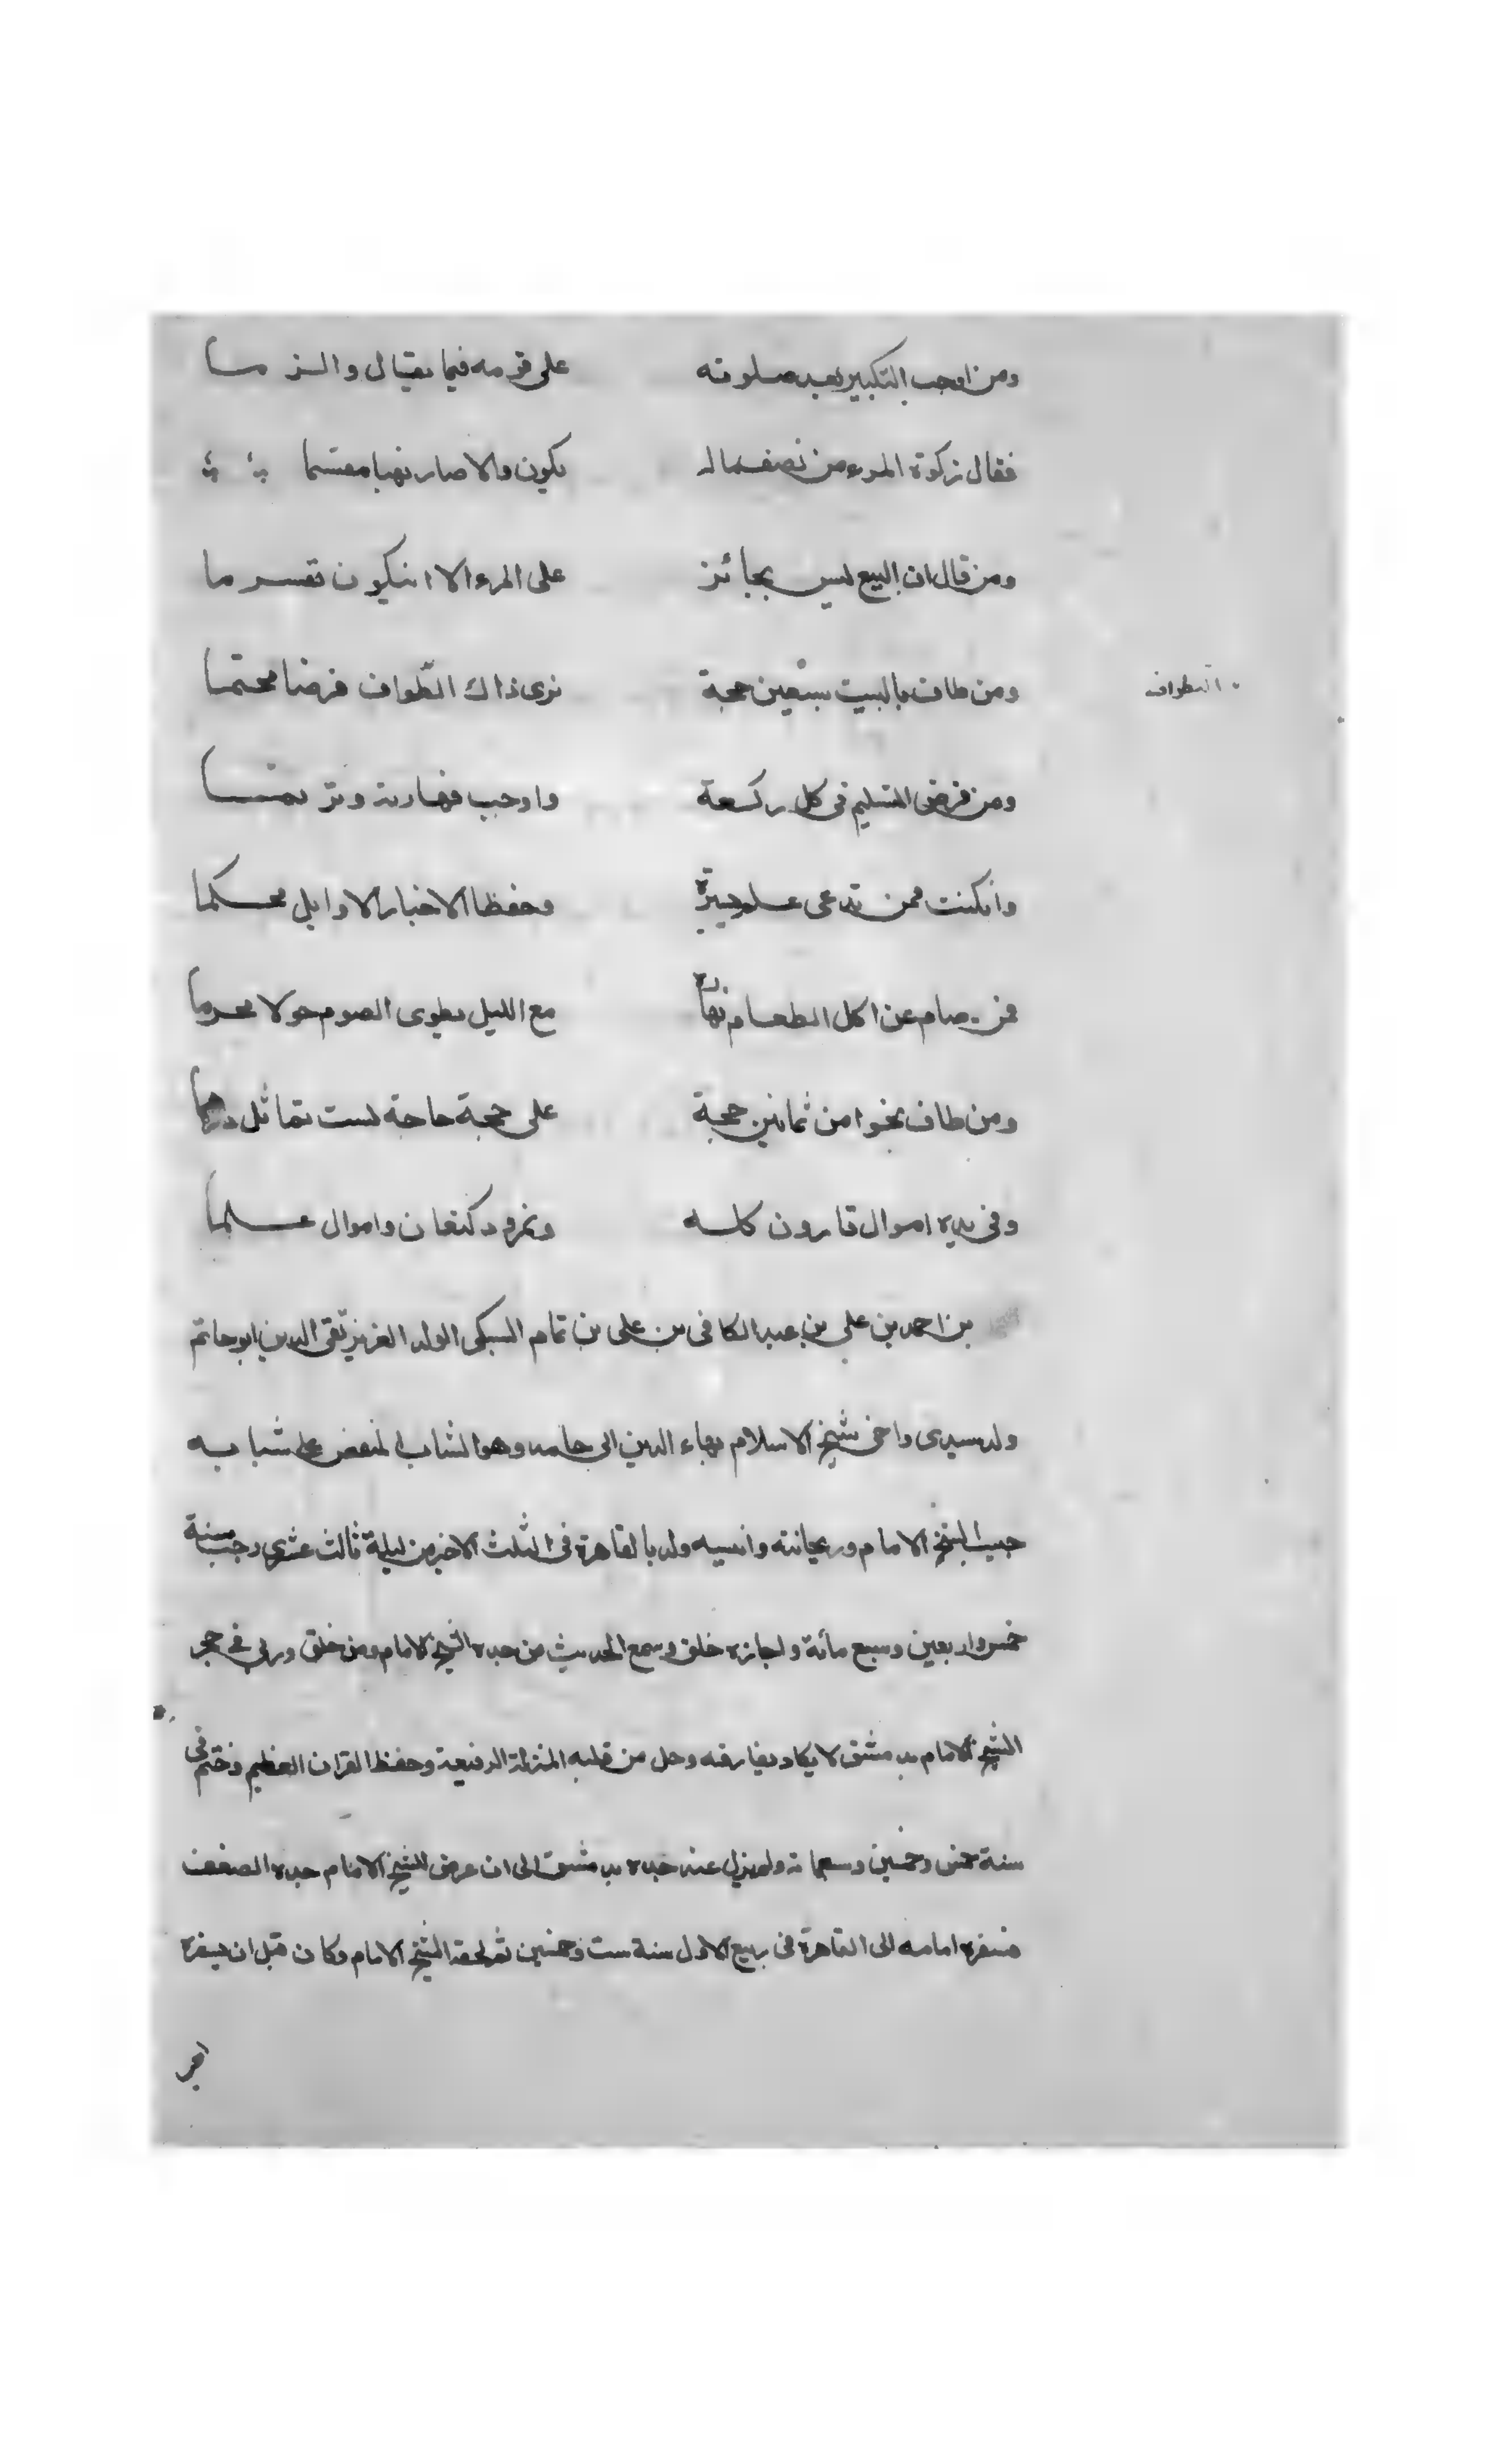 ومن اوجب التكبير بعد صلوته على قومه فيما يقال والزما
فقال زكوة المرء من نصف ماله يكون والا صار نهبا مقسما
ومن قال ان البيع ليس بجائز على المرء الا ان يكون تفسرما
ومن طاف بالبيت سبعين حجة نرى ذاك الطواف فرضا محتما
التطواف
ومن فرض التسليم في كل ركعة واوجب فيها
وانكنت ممن تدعى علم سيرة وحفظا الاخبار الاوايل محكما
فمن صام عن اكل الطعام نهاره مع الليل يطوى الصوم حولا محرما
ومن طاف نحوا من ثمانين حجة على حجة حاجة ليست تماثل درهما
وفى يديه اموال قارون كله ونمرود كنعان واموال علما
بن احمد بن على بن عبد الكافى بن على بن تمام السبكى الولد العزيز تقى الدين ابو حاتم
ولد سيدى واخى شيخ الاسلام بهاء الدين ابى حامد وهو الشاب المنغص على شبابه
حبيب الشيخ الامام وريحانته وانسيه ولد بالقاهرة فى الثلث الاخير من ليلة ثالث عشرى رجب سنة
خمس واربعين وسبع مائة واجازه خلق وسمع الحديث من جده الشيخ الامام ومن خلق وربى فى حجر
الشيخ الامام بدمشق لا يكاد يفارقه وحل من قلبه المنزلة الرفيعة وحفظ القران العظيم وختم فى
سنة خمس وخمسين وسبعمائة ولم يزل عند جده بدمشق الى ان عرض للشيخ الامام جده الضعف
فسفره امامه الى القاهرة فى ربيع الاول سنة ست وخمسين ثم لحقه الشيخ الامام وكان قبل ان يسفره